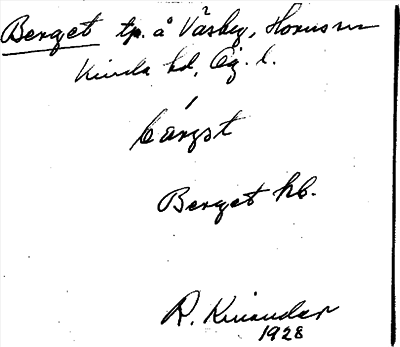 Berget tp. å Väsby, Horns sn
Kinda hd, Ög. l.
bärgət
Berget hb.
R. Kinander
1928